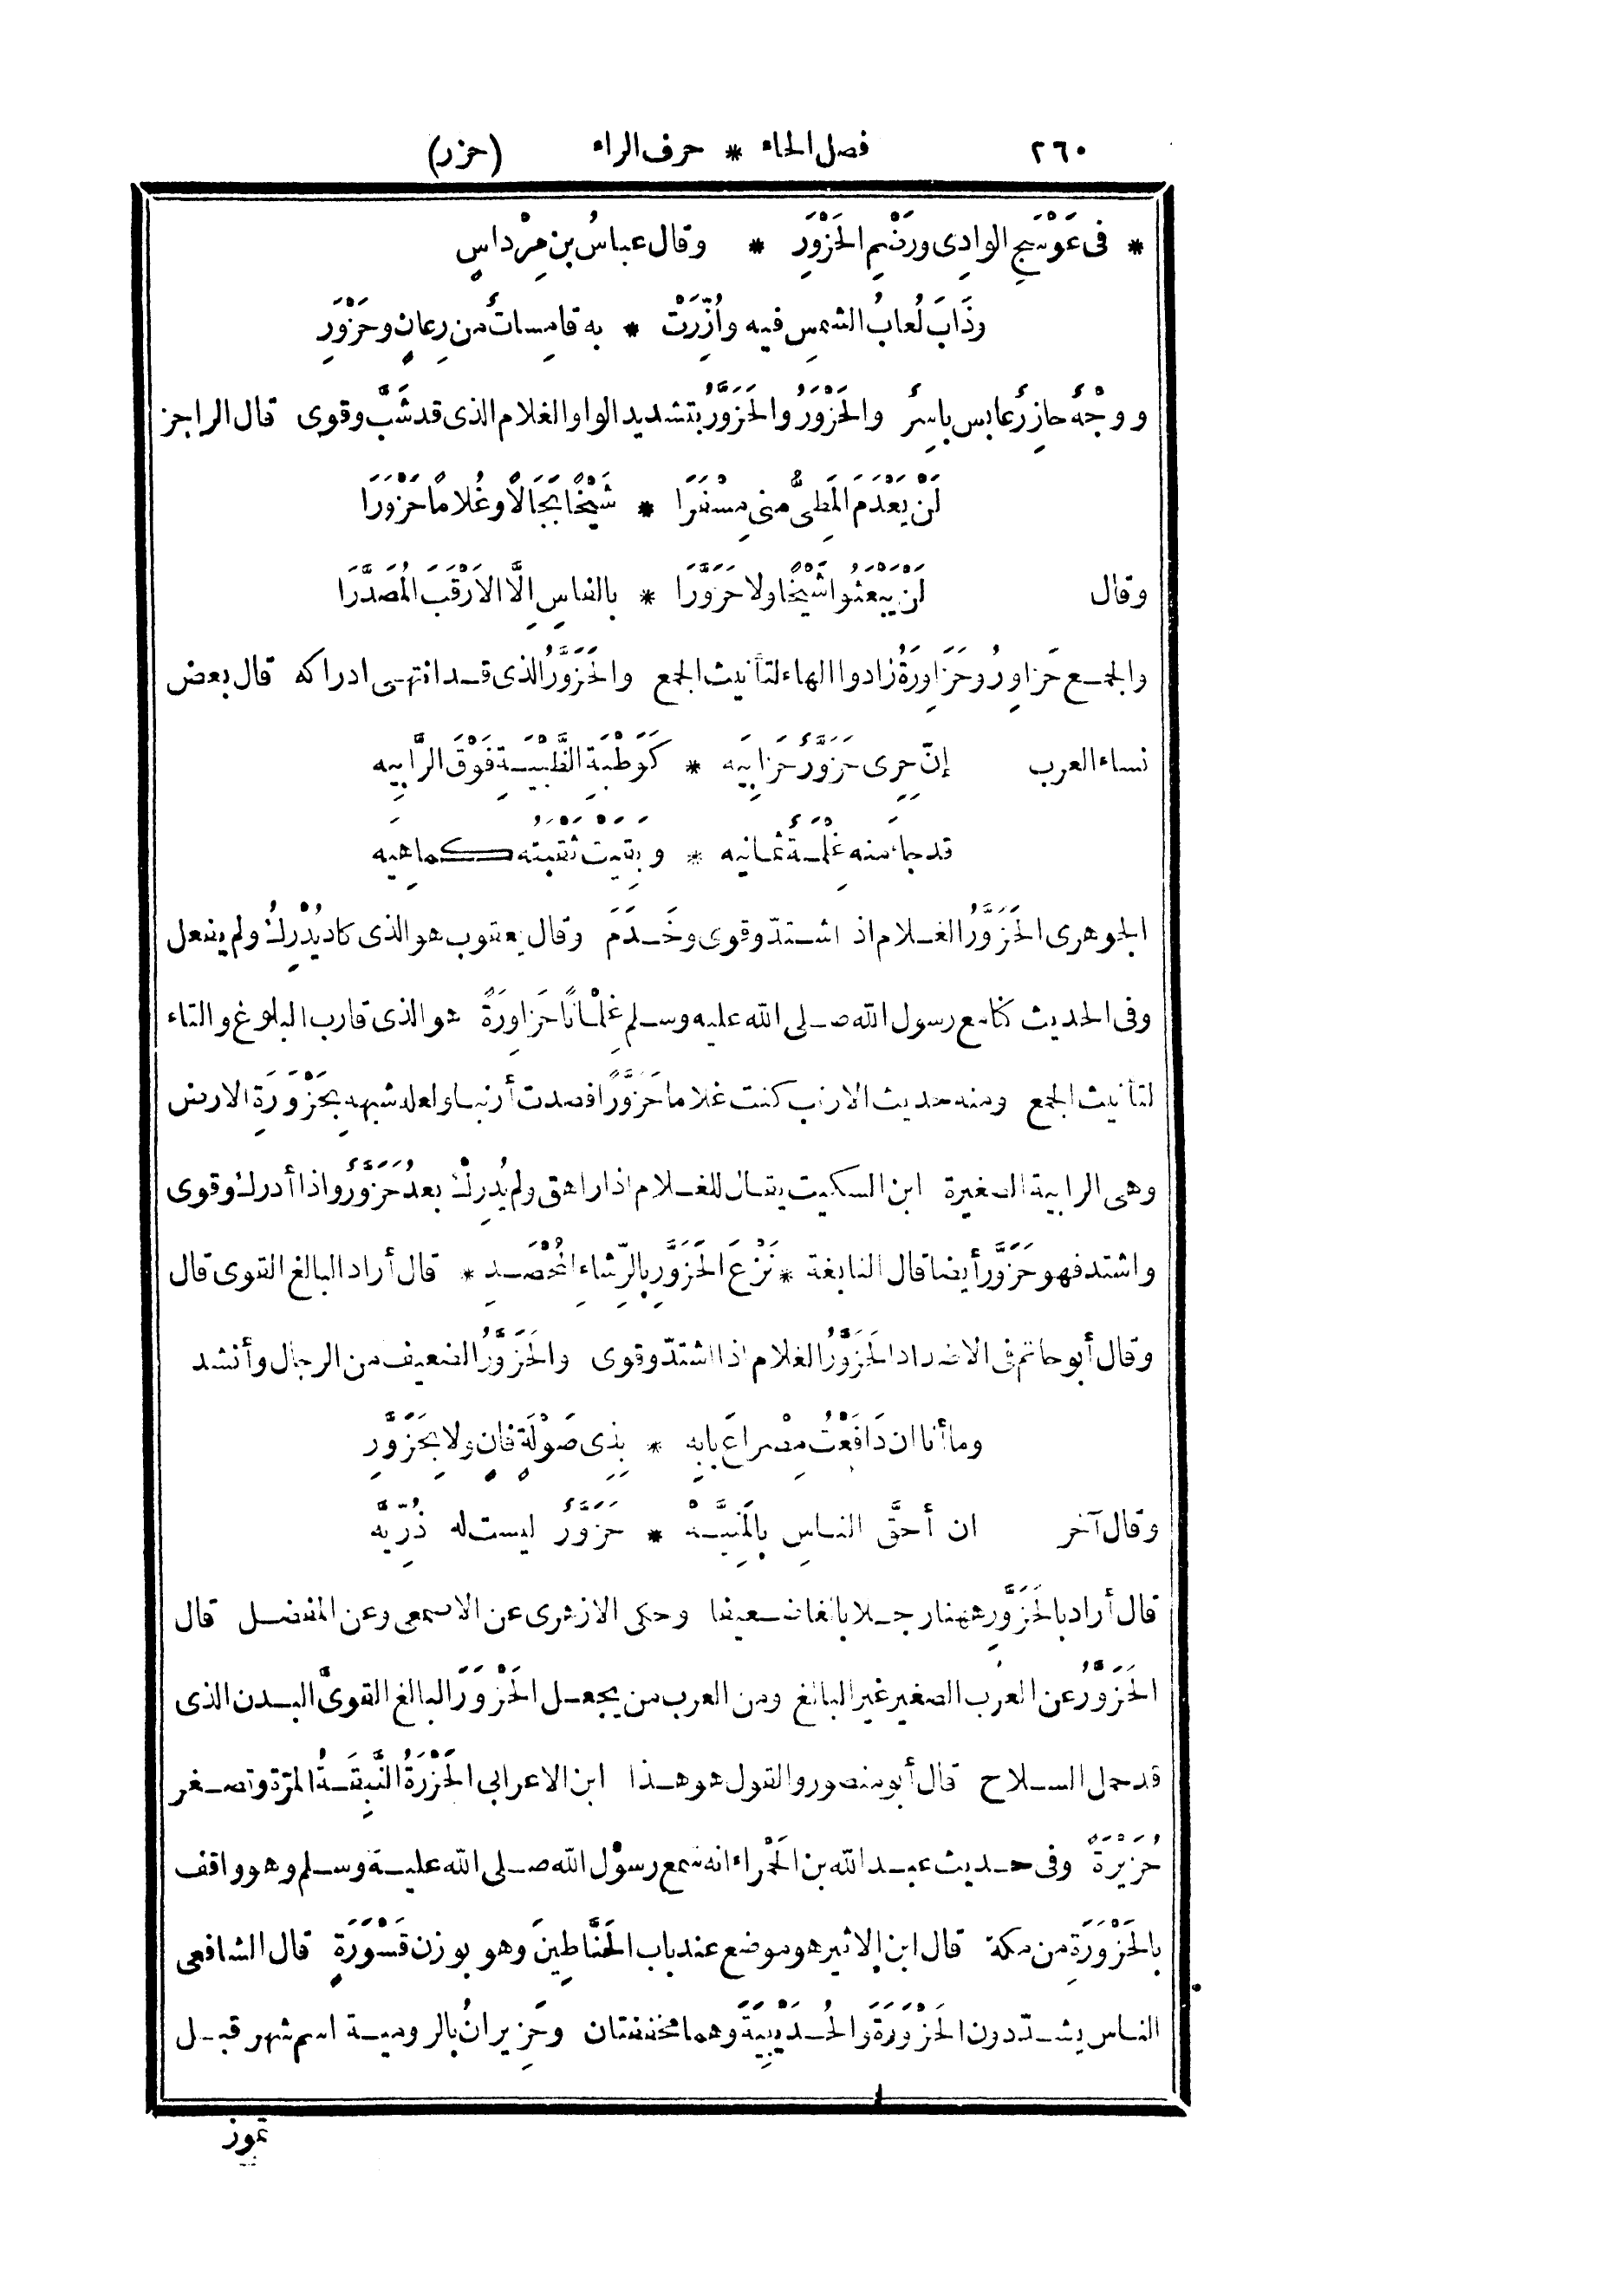 ٢٦٠ فصل الحاء * حرف الراء (حزر)
* فى عَوْسَجِ الوادِى ورَضْمِ الحَزْوَرِ * وقال عباسُ بن مِرْداسٍ
وذَابَ لُعابُ الشمسِ فيه وأُزِّرَتْ * به قامِساتٌ من رِعانٍ وحَزْوَرِ
ووجْهٌ حازِرٌ عابس باسِرٌ والحَزْوَرُ والحَزَوَّرُ بتشديد الواو الغلام الذى قد شَبَّ وقوى قال الراجز
لَنْ يَعْدَمَ المَطِىُّ منى مِسْفَرَا * شَيْخًا بَجَالًا وغُلامًا حَزْوَرَا
وقال لَنْ يَبْعَثُوا شَيْخًا ولا حَزَوَّرَا * بالفاسِ إلَّا الاَرْقَبَ المُصَدَّرَا
والجمع حَزاوِرُ وحَزَاوِرَةٌ زادوا الهاء لتأنيث الجمع والحَزَوَّرُ الذى قد انتهى ادراكه قال بعض
نساء العرب إنّ حِرِى حَزَوَّرٌ حَزابِيَه * كَوَطْبَةِ الظَّبْيَةِ فَوْقَ الرَّابِيه
قد جاء منه غِلْمَةٌ ثمانيه * وبَقِيَتْ ثَقْبَتُه كما هِيَه
الجوهرى الحَزَوَّرُ الغلام اذ اشتدّ وقوى وخَدَمَ وقال يعقوب هو الذى كاد يُدْرِكُ ولم يفعل
وفى الحديث كنا مع رسول الله صلى الله عليه وسلم غِلْمَانًا حَزاوِرَةً هو الذى قارب البلوغ والتاء
لتأنيث الجمع ومنه حديث الارنب كنت غلاما حَزَوَّرًا فصدت أرنبا ولعله شبهه بِحَزْوَرَةِ الارض
وهى الرابية الصغيرة ابن السكيت يقال للغلام اذا راهق ولم يُدرِكْ بعدُ حَزَوَّرٌ واذا أدرك وقوى
واشتد فهو حَزَوَّر أيضا قال النابغة * نَزْعَ الحَزَوَّرِ بالرِّشاءِ المُحْصَدِ * قال أراد البالغ القوى قال
وقال أبو حاتم فى الاضداد الحَزَوَّرُ الغلام اذا اشتدّ وقوى والحَزَوَّرُ الضعيف من الرجال وأنشد
وما أنا ان دَافَعْتُ مِصْراعَ بابِه * بِذِى صَوْلَةٍ فانٍ ولا بِحَزَوَّرِ
وقال آخر ان أحقَّ الناسِ بالمَنِيَّهْ * حَزَوَّرٌ ليست له ذُرِّيَّه
قال أراد بالحَزَوَّرِ ههنا رجلا بالغا ضعيفا وحكى الازهرى عن الاصمعى وعن المفضل قال
الحَزَوَّرُ عن العرب الصغير غير البالغ ومن العرب من يجعل الحَزْوَرَ البالغ القوىّ البدن الذى
قد حمل السلاح قال أبو منصور والقول هو هذا ابن الاعرابى الحَزْرَةُ النَّبِقَةُ المرّة وتصغر
حُزَيْرَةً وفى حديث عبد الله بن الحَمْراء انه سمع رسول الله صلى الله عليه وسلم وهو واقف
بالحَزْوَرَةِ من مكة قال ابن الاثير هو موضع عند باب الحَنَّاطِينَ وهو بوزن قَسْوَرَةٍ قال الشافعى
الناس يشدّدون الحَزْوَرَةَ والحُدَيْبِيَةَ وهما مخففتان وحَزِيرانُ بالرومية اسم شهر قبل
تموز